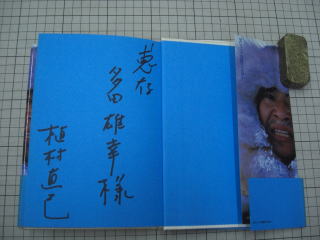 恵存
多田雄幸様
植村直己